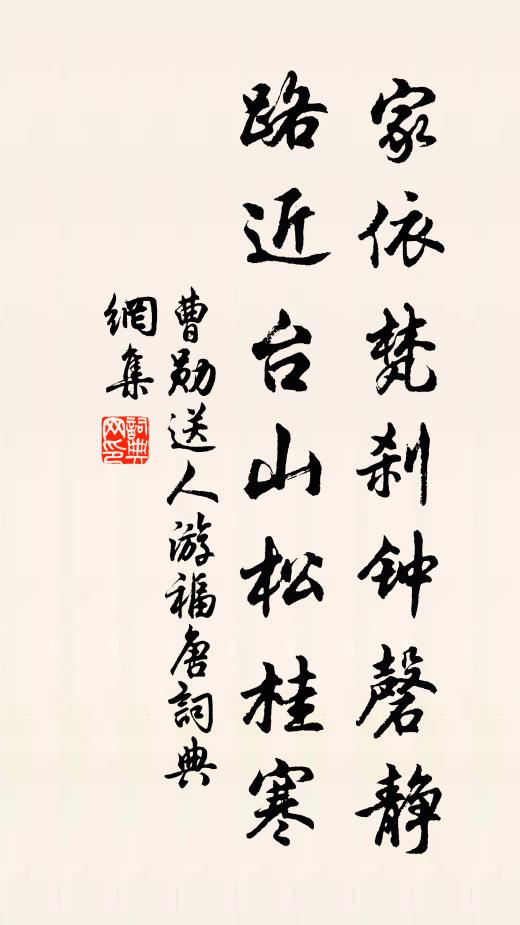 家依梵刹钟磬静
路近台山松桂寒
曹勋送人游福唐詞典
網集
詞典
网印